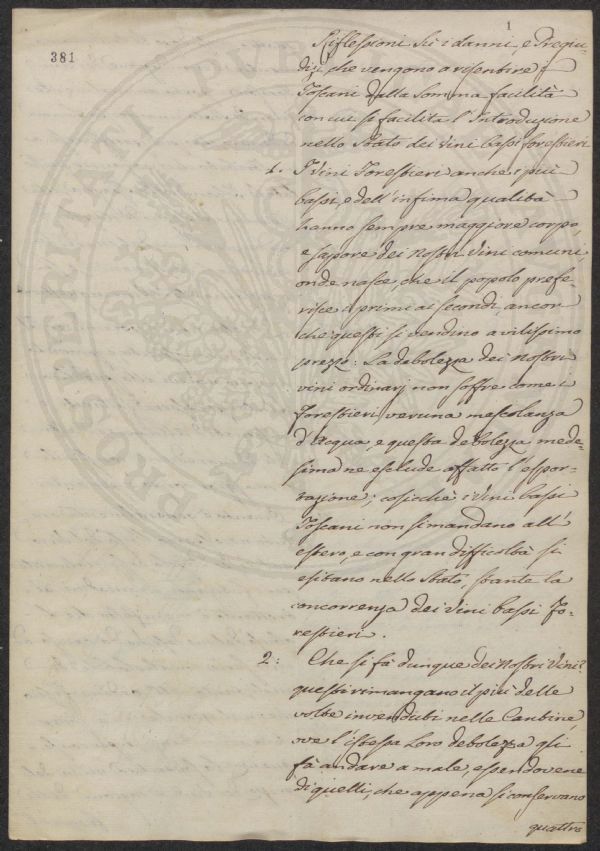 1
381
Riflessioni sù i danni, e Pregiu=
dizi che vengono a risentire i
Toscani dalla somma facilità
con cui si facilita l'Introduzione
nello Stato dei Vini bassi forestieri
1. I Vini Forestieri anche i più
bassi, e dell'infima qualità
hanno sempre maggiore corpo,
e sapore dei nostri Vini comuni,
onde nasce che il popolo prefe=
risce i primi ai secondi, ancor
che questi si vendino a vilissimo
prezzo: La debolezza dei nostri
vini ordinarj non soffre come i
Forestieri veruna mescolanza
d'Acqua, e questa debolezza mede=
sima ne esclude affatto l'espor=
tazione; cosicchè i Vini bassi
Toscani non si mandano all'
estero, e con gran difficoltà si
esitano nello Stato, stante la
concorrenza dei Vini bassi Fo=
restieri.
2: Che si fà dunque dei nostri Vini?
questi rimangano il più delle
volte invenduti nelle Cantine,
ove l'istessa loro debolezza gli
fà andare a male, essendovene
di quelli, che appena si conservano
quattro
PROSPERITATI PVB